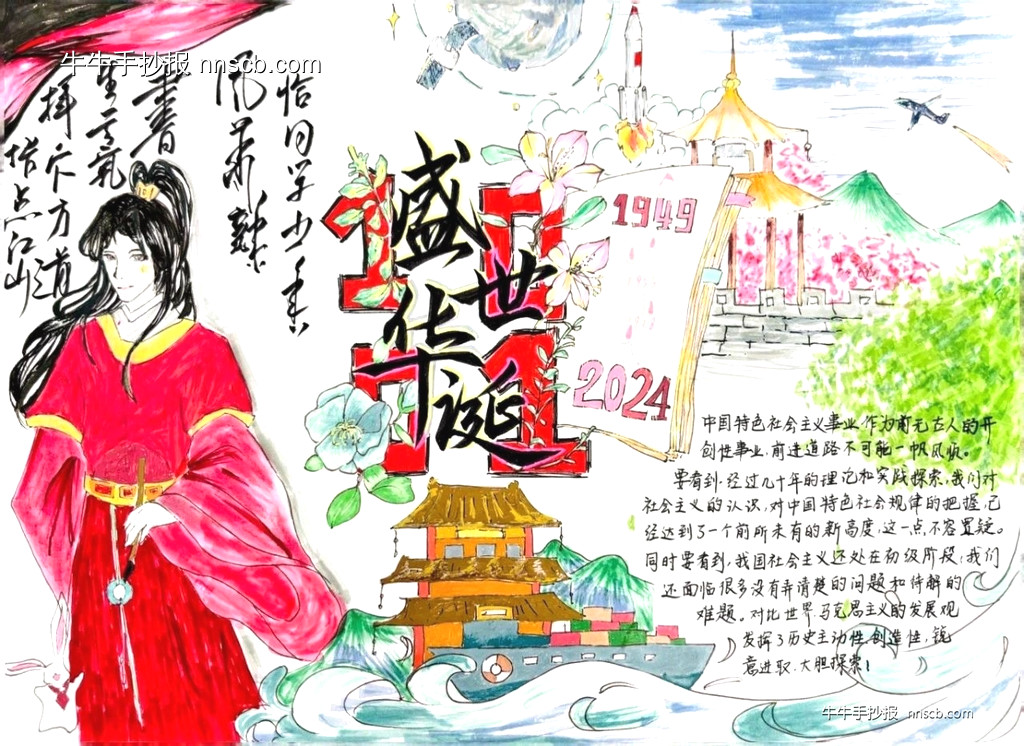 牛牛手抄报 nnscb.com
恰同学少年
风
書
生意氣
揮斥方遒
指点江山
10
01
盛世
华诞
1949
2024
中国特色社会主义事业,作为前无古人的开
创性事业,前进道路不可能一帆风顺。
要看到,经过几十年的理论和实践探索,我们对
社会主义的认识,对中国特色社会规律的把握,已
经达到了一个前所未有的新高度,这一点,不容置疑。
同时要看到,我国社会主义还处在初级阶段,我们
还面临很多没有弄清楚的问题和待解的
难题。对比世界,马克思主义的发展观
发挥了历史主动性,创造性,锐
意进取,大胆探索!
牛牛手抄报 nnscb.com